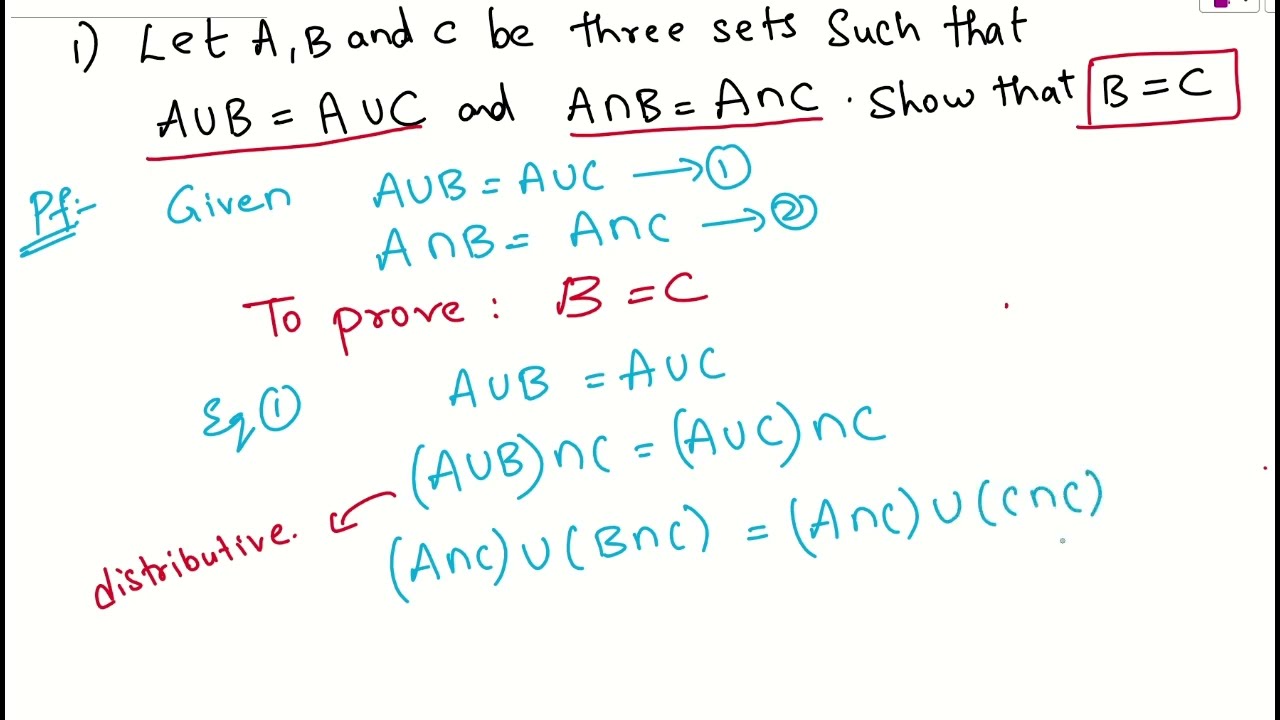 1) Let A, B and C be three sets such that
A∪B = A∪C and A∩B = A∩C . Show that B = C
Pf:- Given A∪B = A∪C → ①
A∩B = A∩C → ②
To prove : B = C
Eq ① A∪B = A∪C
(A∪B)∩C = (A∪C)∩C
distributive. (A∩C)∪(B∩C) = (A∩C)∪(C∩C)